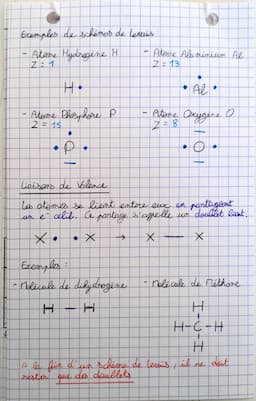 Exemples de schémas de Lewis
- Atome Hydrogène H - Atome Aluminium Al
Z = 1 Z = 13
H Al
- Atome Phosphore P - Atome Oxygène O
Z = 15 Z = 8
P O
Liaisons de Valence
Les atomes se lient entre eux en partageant
un e⁻ célib. Ce partage s'appelle un doublet liant.
X • • X → X — X
Exemples :
- Molécule de dihydrogène - Molécule de Méthane
H
H — H H-C-H
H
A la fin d'un schéma de Lewis, il ne doit
rester que des doublets